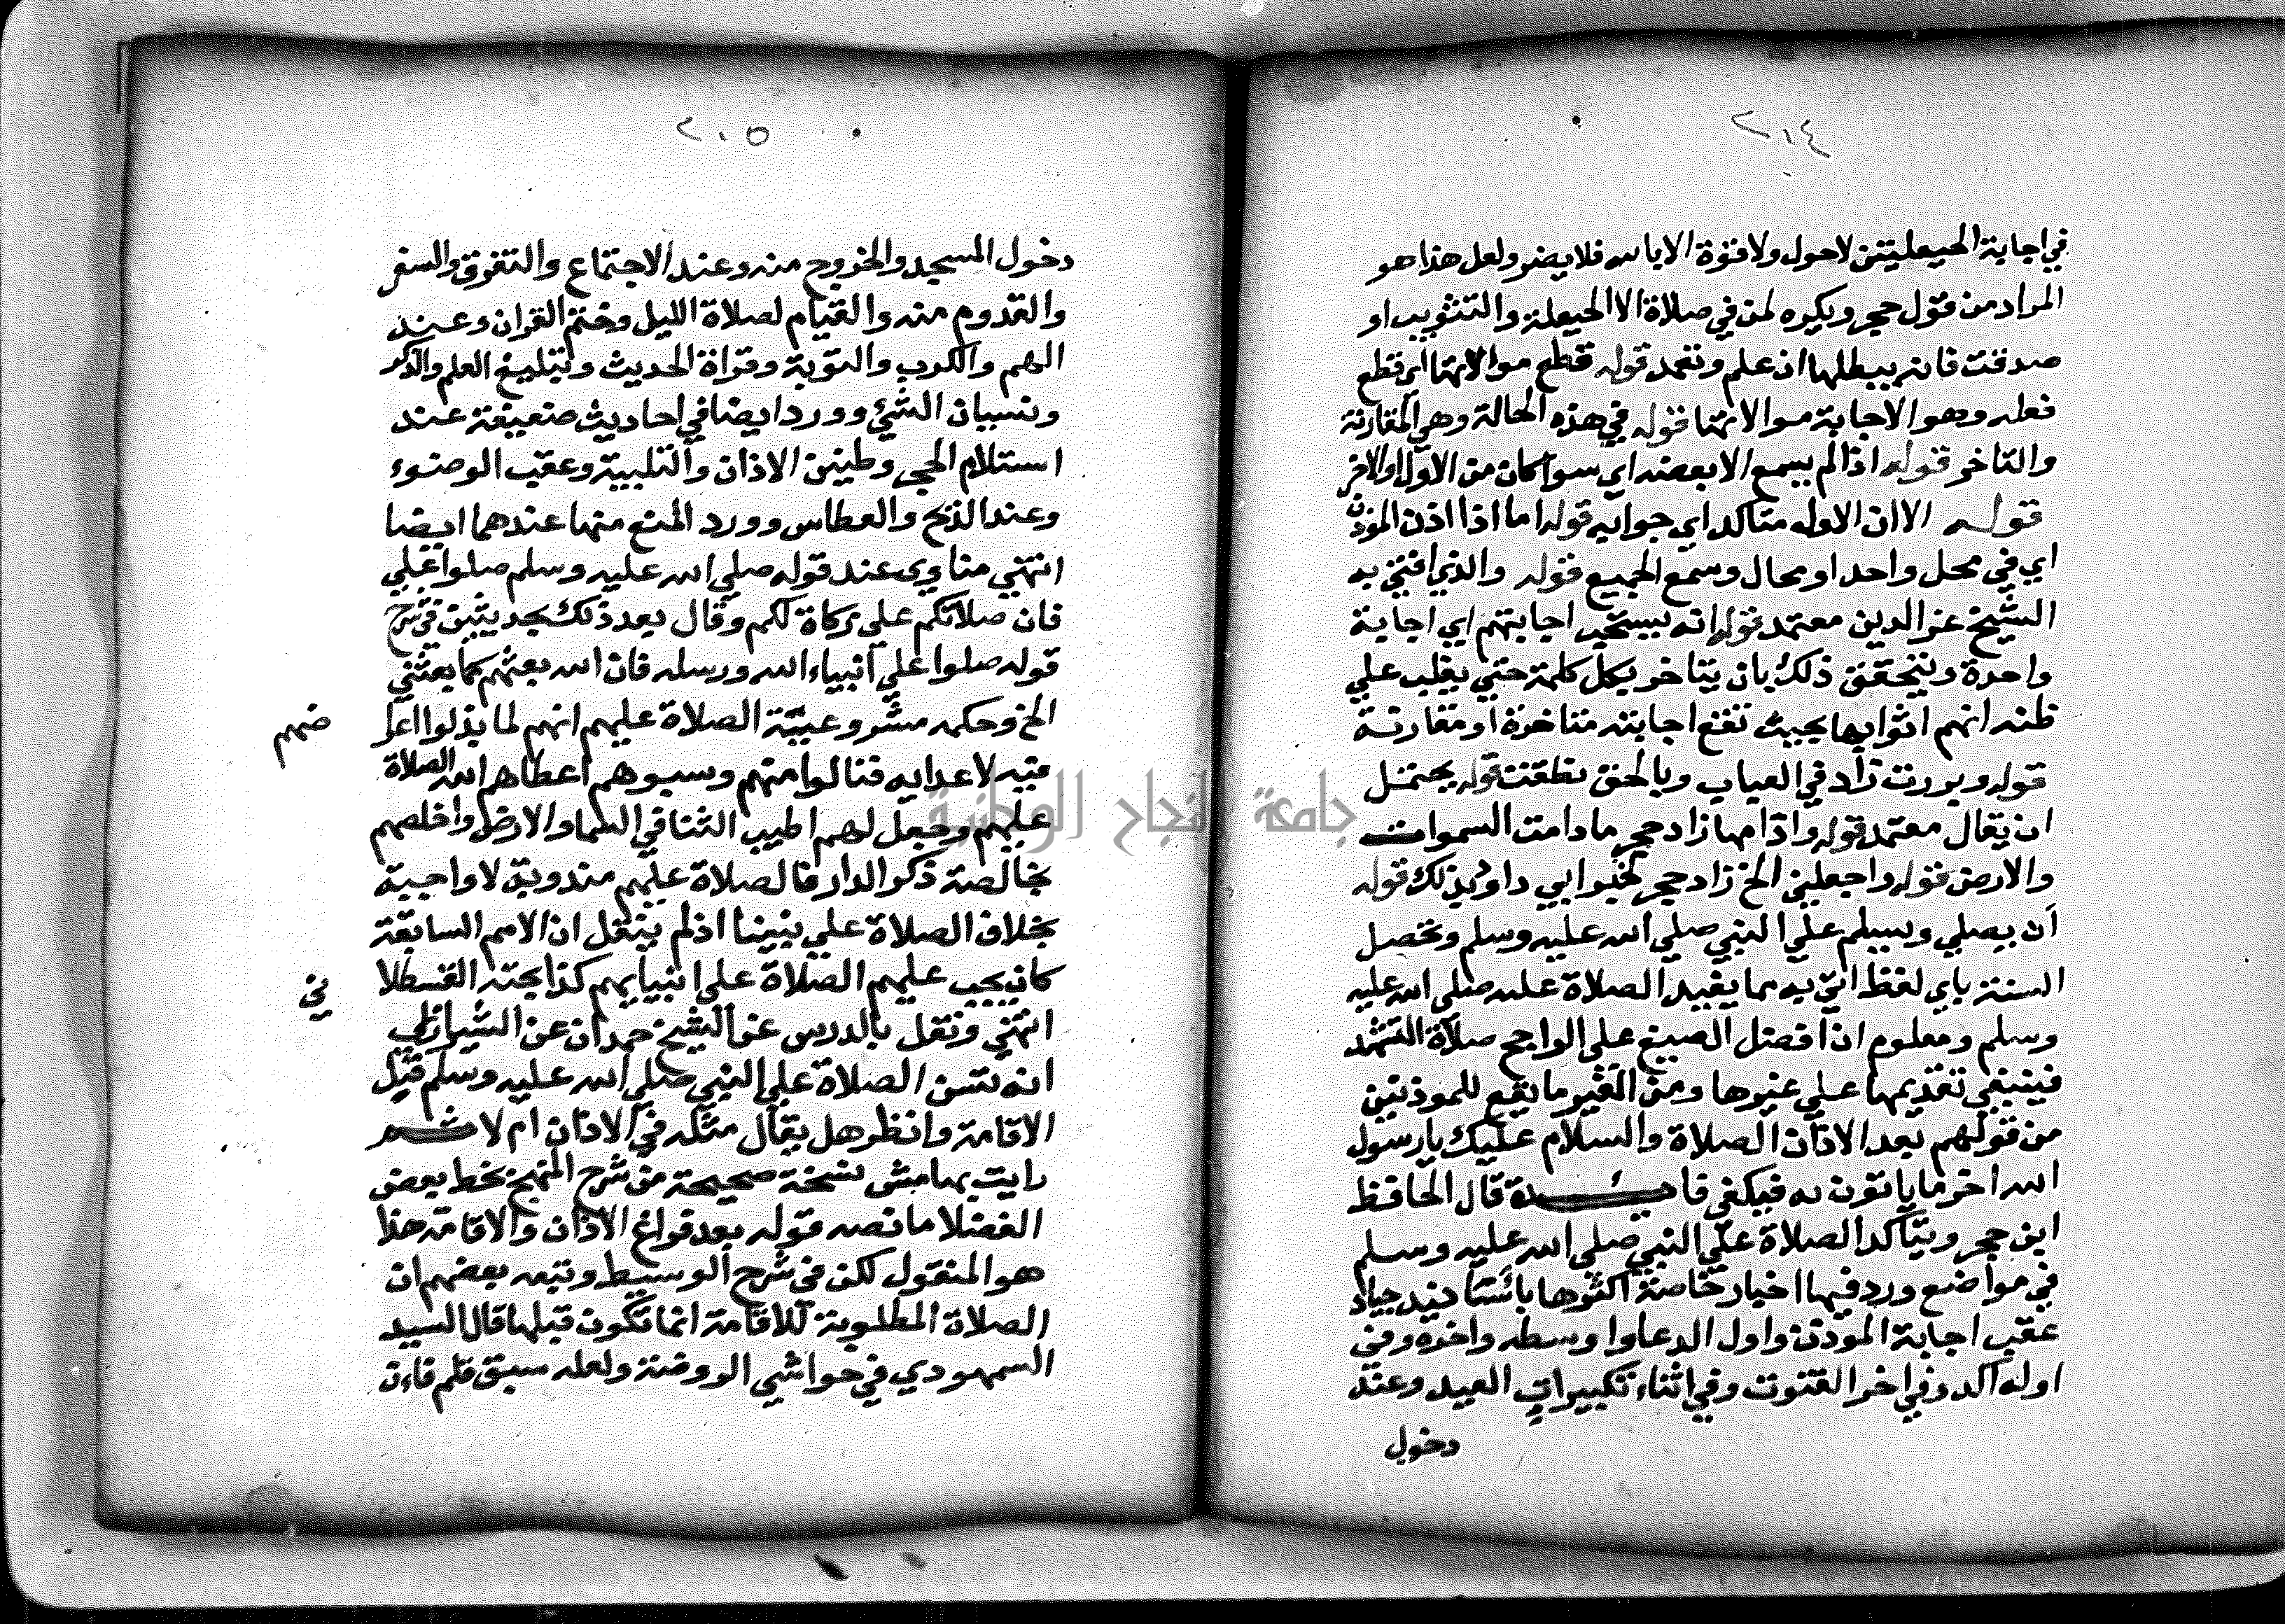 ٢٠٤
في اجابة الحيعلتين لاحول ولا قوة الا بالله فلا يضر ولعل هذا هو
المراد من قول حجر ويكره لمن في صلاة الا الحيعلة والتثويب او
صدقت فانه يبطلها ان علم وتعمد قوله قطع موالاتها اي قطع
فعله وهو الاجابة موالاتها قوله في هذه الحالة وهي المقارنة
والتاخر قوله اذا لم يسمع الا بعضه اي سوا كان من الاول او الاخر
قوله الا ان الاوله متاكد اي جوابه قوله اما اذا اذن المؤذن
اي في محل واحد او محال وسمع الجميع قوله والذي افتى به
الشيخ عز الدين معتمد قوله انه يستحب اجابتهم اي اجابة
واحدة ويتحقق ذلك بان يتاخر بكل كلمة حتى يغلب علي
ظنه انهم اتوا بها بحيث تقع اجابته متاخرة او مقارنة
قوله وبررت زاد في العباب وبالحق نطقت قوله يحتمل
ان يقال معتمد قوله واذا مها زاد حجر ما دامت السموات
والارض قوله واجعلني الخ زاد حجر لخبر ابي داود بذلك قوله
ان يصلي ويسلم علي النبي صلي الله عليه وسلم وتحصل
السنة باي لفظ اتي به مما يفيد الصلاة عليه صلي الله عليه
وسلم ومعلوم ان افضل الصيغ علي الراجح صلاة التشهد
فينبغي تقديمها علي غيرها ومن الغير ما يقع للموذنين
من قولهم بعد الاذان الصلاة والسلام عليك يا رسول
الله اخر ما ياتون به فيكفي فائدة قال الحافظ
ابن حجر ويتاكد الصلاة علي النبي صلي الله عليه وسلم
في مواضع ورد فيها اخبار خاصة اكثرها باسانيد جياد
عقب اجابة الموذن واول الدعا واوسطه واخره وفي
اوله اكد وفي اخر القنوت وفي اثناء تكبيرات العيد وعند
دخول
٢٠٥
دخول المسجد والخروج منه وعند الاجتماع والتفرق والسفر
والقدوم منه والقيام لصلاة الليل وختم القران وعند
الهم والكرب والتوبة وقراة الحديث وتبليغ العلم والذكر
ونسيان الشئ وورد ايضا في احاديث ضعيفة عند
استلام الحجر وطنين الاذان والتلبية وعقب الوضوء
وعند الذبح والعطاس وورد المنع منها عندهما ايضا
انتهي مناوي عند قوله صلي الله عليه وسلم صلوا علي
فان صلاتكم علي زكاة لكم وقال بعد ذلك بحديثين في شرح
قوله صلوا علي انبياء الله ورسله فان الله بعثهم كما بعثني
الخ وحكمه مشروعية الصلاة عليهم انهم لما بذلوا اعرا
ضهم
فيه لاعدايه فنالوا منهم وسبوهم اعطاهم الله الصلاة
عليهم وجعل لهم اطيب الثنا في السما والارض واخلصهم
بخالصة ذكر الدار فالصلاة عليهم مندوبة لا واجبة
بخلاف الصلاة علي نبينا اذ لم ينقل ان الامم السابقة
كان يجب عليهم الصلاة علي انبيايهم كذا بحثه القسطلا
ني
انتهي ونقل بالدرس عن الشيخ حمدان عن الشيرازي
انه تسن الصلاة علي النبي صلي الله عليه وسلم قبل
الاقامة وانظر هل يقال مثله في الاذان ام لا ثم
رايت بهامش نسخة صحيحة من شرح المنهج بخط بعض
الفضلا ما نصه قوله بعد فراغ الاذان والاقامة هذا
هو المنقول لكن في شرح الوسيط وتبعه بعضهم ان
الصلاة المطلوبة للاقامة انما تكون قبلها قال السيد
السمهودي في حواشي الروضة ولعله سبق قلم فان
جامعة النجاح الوطنية